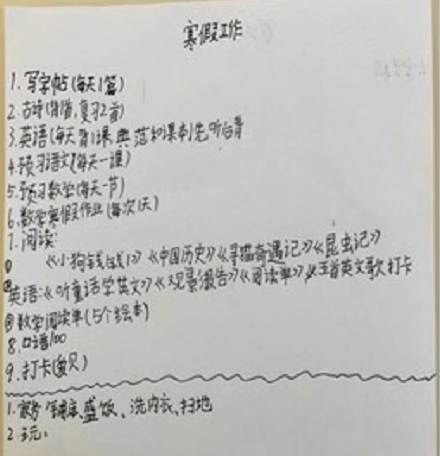 寒假工作
1.写字帖(每天1篇)
2.古诗(背1首,复习2首)
3.英语(每天背1课,典范和课本)先听后背
4.预习语文(每天一课)
5.预习数学(每天一节)
6.数学寒假作业(每次1天)
7.阅读:
① 《小狗钱钱1》《中国历史》《寻猫奇遇记》《昆虫记》
②英语:《听童话学英文》《观影报告》《阅读单》 五首英文歌打卡
③数学阅读单(5个绘本)
8.口语100
9.打卡(贝)
1.家务 盛饭、洗内衣、扫地
2.玩: